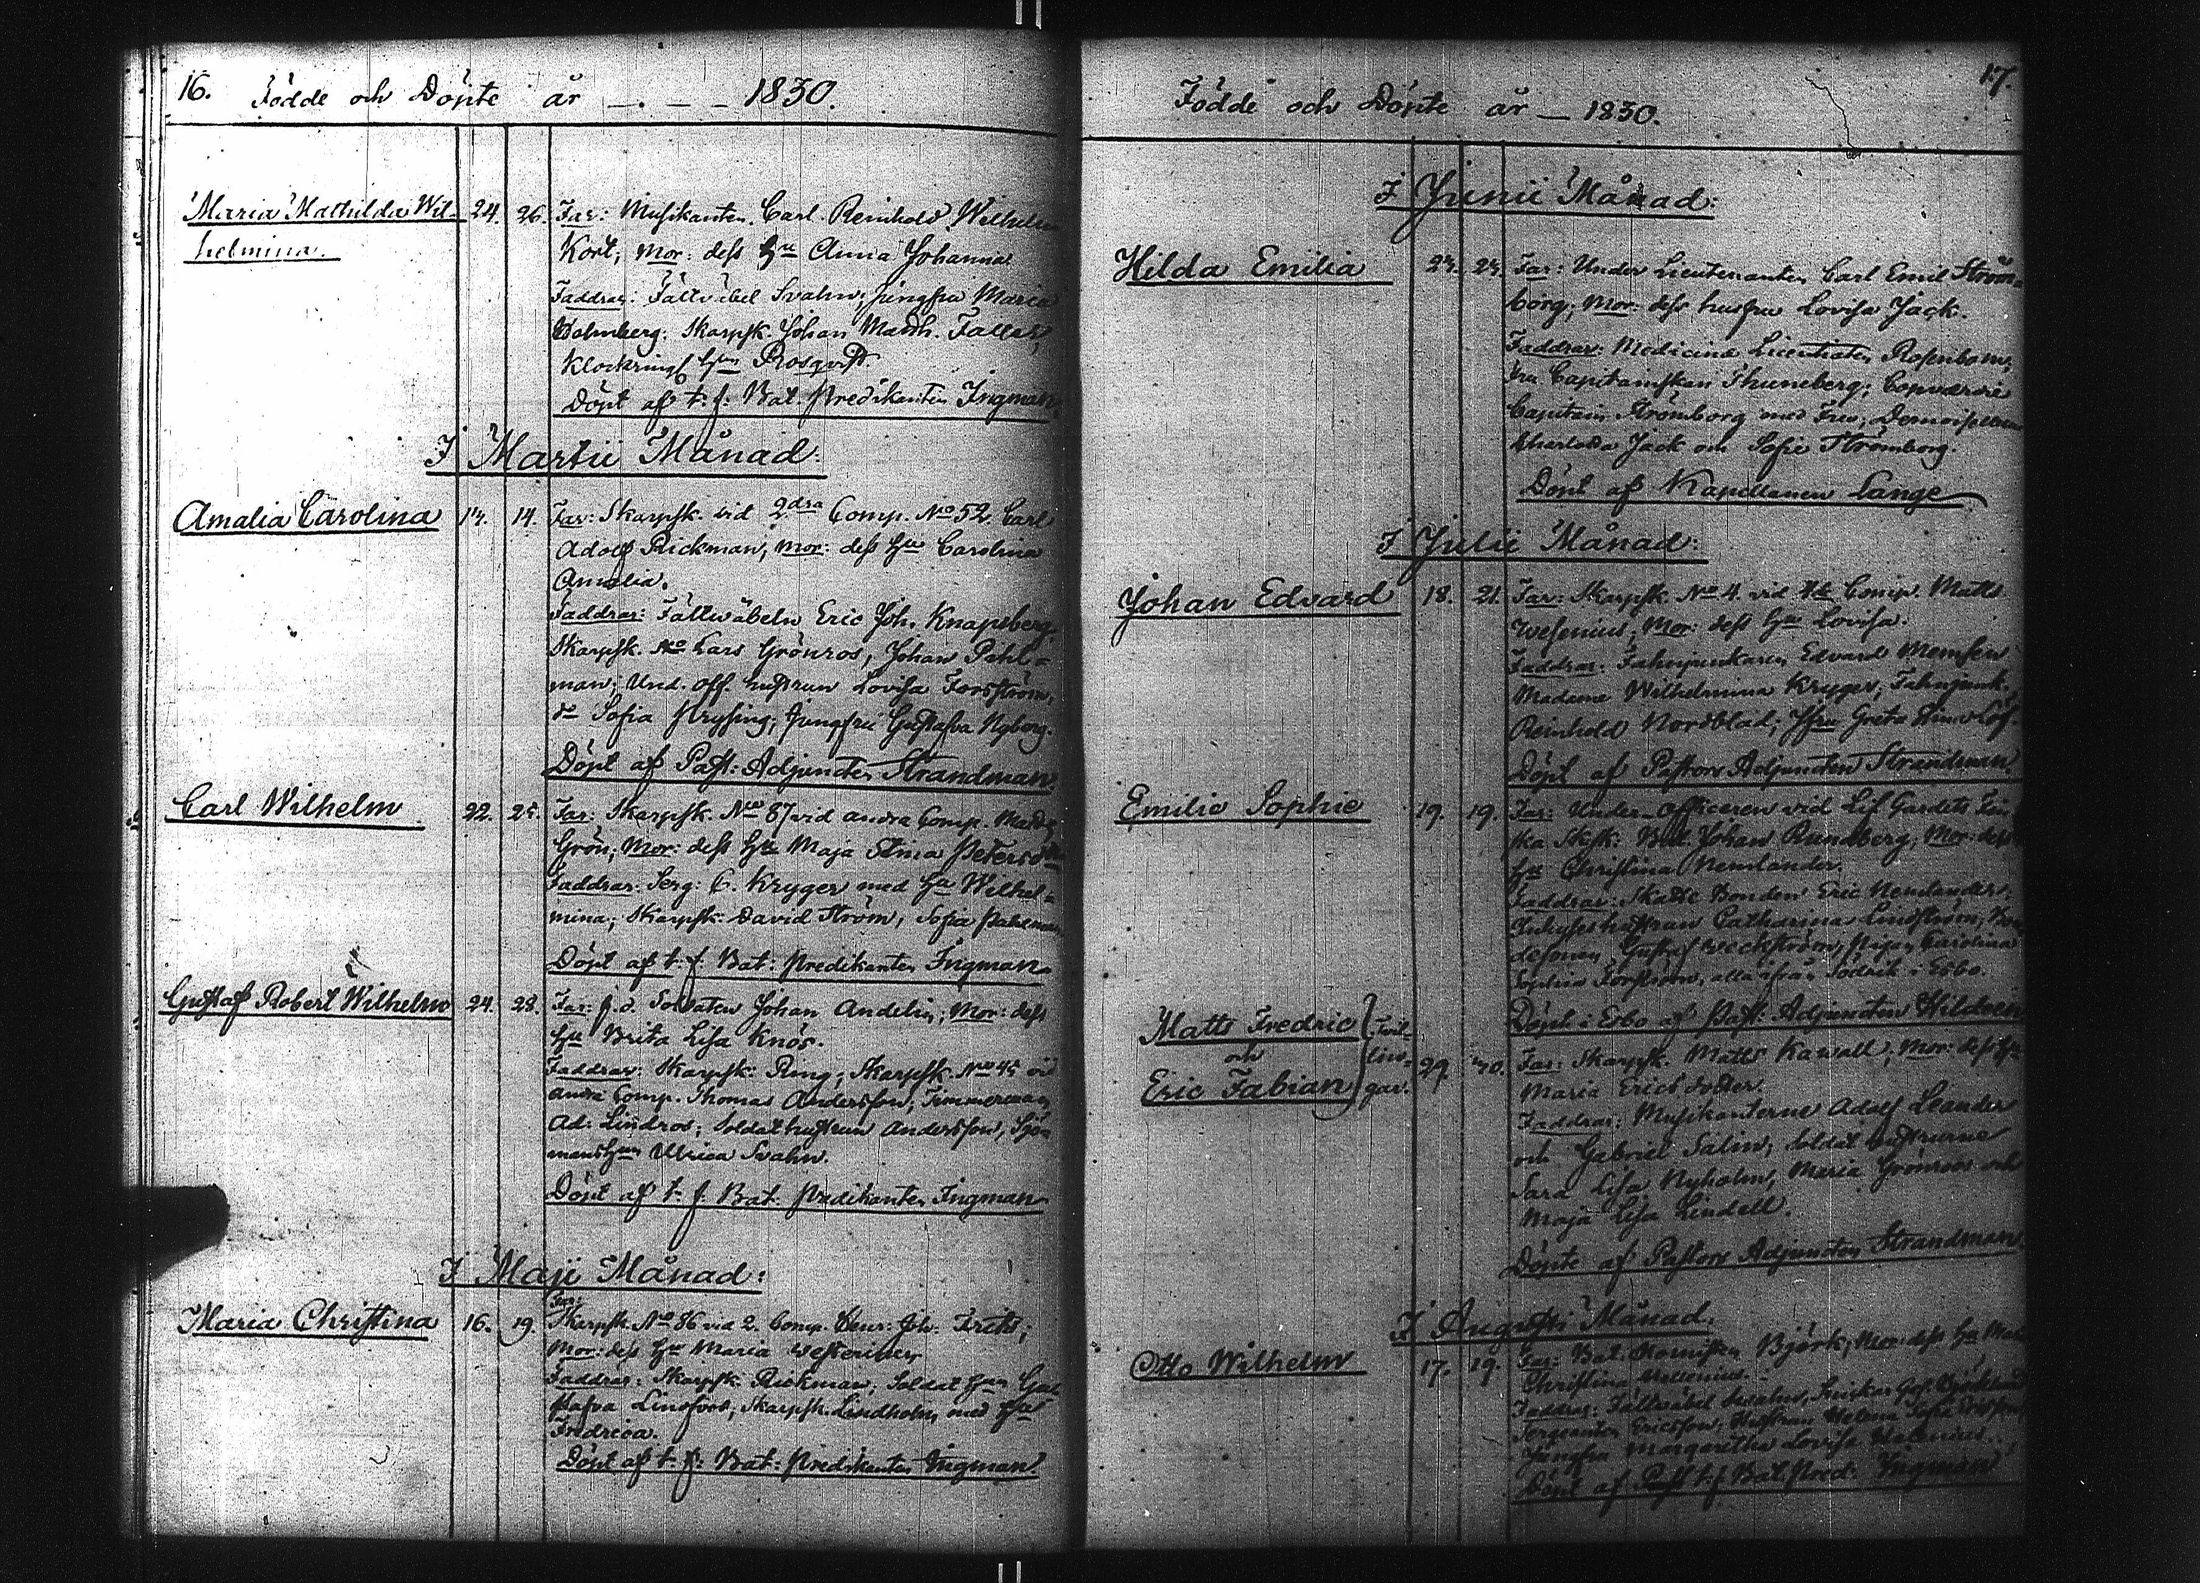 16. Födde och Döpte år 1830.
Maria Mathilda Wil-
helmina.
24. 26. Far: Musikanten Carl Reinhold Wilhelm
Kort, Mor: dess Hu Anna Johanna
Faddrar: Fältväbel Svahn, jungfru Maria
Holmberg; Skarpsk. Johan Matth. Fallah,
Rosqvist.
Döpt af t. f. Bat. Predikanten Ingman.
I Martii Månad:
Amalia Carolina
14. Far: Skarpsk. vid 2dra Comp. No 52. Carl
Adolf Rickman, Mor: dess Hu Carolina
Amalia.
Faddrar: Fältwäbeln Eric Joh. Knapsberg,
Skarpsk. No Lars Grönros, Johan Pihl-
man; Und. Off. hustrun Lovisa Forsström,
do Sofia Prysing; Jungfru Gustafva Nyborg.
Döpt af Past: Adjuncten Strandman.
Carl Wilhelm
22. 25. Far: Skarpsk. No 87 vid andra Comp. Matts
Grön; Mor: dess Hu Maja Stina Petersd
Faddrar: Serg: C. Kryger med Hu Wilhel-
mina; Skarpsk: David Ström, Sofia
Döpt af t. f. Bat: Predikanten Ingman.
Gustaf Robert Wilhelm
24. 28. Far: f. d. Soldaten Johan Andelin; Mor: dess
Hu Brita Lisa Knös.
Faddrar: Skarpsk: Ring; Skarpsk. No 45 vid
andra Comp. Thomas Andersson; Timmerman
Ad: Lindros; Soldat hustrun Andersson, Sjö-
mans Hun Ulrica Svahn.
Döpt af t. f. Bat. Predikanten Ingman.
I Maji Månad:
Maria Christina
16. 19. Far:
Skarpsk. No 86 vid 2. Comp. Joh: Frits;
Mor: dess Hu Maria
Faddrar: Skarpsk: Rickman; Soldat Hun Gu-
stafva Lindfors, Skarpsk. Lindholm med Hu
Fredrica.
Döpt af t. f: Bat: Predikanten Ingman.
17.
Födde och Döpte år 1830.
I Junii Månad:
Hilda Emilia
Far: Under Lieutenanten Carl Emil Ström-
borg; Mor: dess hustru Lovisa Jack.
Faddrar: Medicine Licentiaten Rosenbom;
Fru Capitainskan Thuneberg;
Capitain Strömborg med Fru; Demoisellerna
Charlotta Jack och Sofie Strömborg.
Döpt af Kapellanen Lange
I Julii Månad:
Johan Edvard
18. 21. Far: Skarpsk. No 4. vid 4de Comp. Matts
Wesenius; Mor: dess Hu Lovisa.
Faddrar: Fahnjunkaren Edvard Memsen
Madame Wilhelmina Kryger; Fahnjunk.
Reinhold Nordblad; Hu Greta Stina Löf
Döpt af Pastors Adjuncten Strandman.
Emilie Sophie
19. 19. Far: Under-officeren vid Lif Gardets Fin-
ska Sksk: Bat. Johan Rundberg; Mor: dess
Hu Christina Nemlander.
Faddrar: Skatte Bonden Eric Nemlander,
hustrun Catharina Lindström,
Gustaf Beckström, Pigan Carolina
Sophia Forsström, alla ifrån Södrik i Esbo.
Döpt i Esbo af Past: Adjuncten Hildeen
Matts Fredric
och
Eric Fabian
Tvil-
lin-
gar.
29. 30. Far: Skarpsk. Matts Kawall, Mor: dess Hu
Maria Ericsdotter.
Faddrar: Musikanterne Adolf Leander
och Gabriel Salin, Soldat hustrurne
Sara Lisa Nyholm, Maria Grönroos och
Maja Lisa Lindell.
Döpte af Pastors Adjuncten Strandman.
I Augusti Månad.
Otto Wilhelm
17. 19. Far: Bat. Björk, Mor: dess Hu
Christina
Faddrar: Fältväbel
Ericsson, Hustrun Helena
Jungfru Margaretha Lovisa
Döpt af Past. t. f. Bat. Pred: Ingman